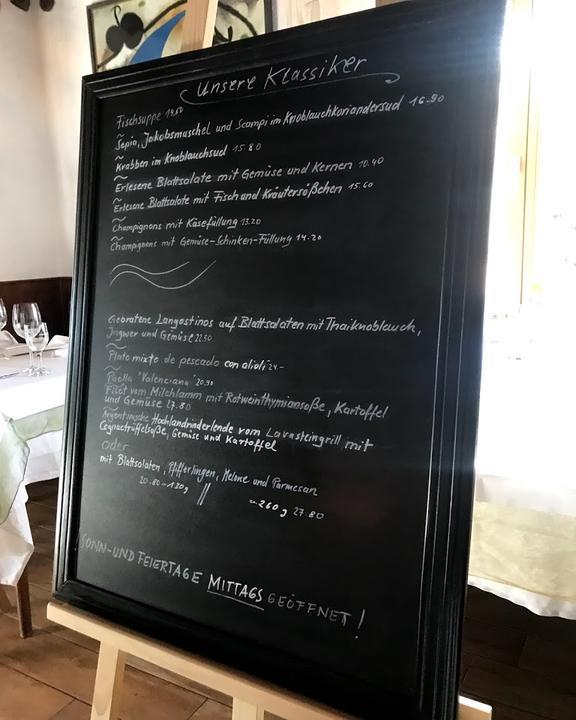 Unsere Klassiker
Fischsuppe
Sepia, Jakobsmuschel und Scampi im Knoblauchkoriandersud 16.90
Krabben im Knoblauchsud 15.80
Erlesene Blattsalate mit Gemüse und Kernen 10.40
Erlesene Blattsalate mit Fisch und Kräutersößchen 15.60
Champignons mit Käsefüllung 13.20
Champignons mit Gemüse-Schinken-Füllung 14.20
Gebratene Langostinos auf Blattsalaten mit Thaiknoblauch,
Ingwer und Gemüse 22.50
Plato mixto de pescado con alioli 24.-
Paella Valenciana 20.90
Filet vom Milchlamm mit Rotweinthymiansoße, Kartoffel
und Gemüse 27.80
Argentinische Hochlandrinderlende vom Lavasteingrill mit
Cognactrüffelsoße, Gemüse und Kartoffel
Oder
mit Blattsalaten, Pfifferlingen, Melone und Parmesan
20.80 130g // 260g 27.80
SONN-UND FEIERTAGE MITTAGS GEÖFFNET!